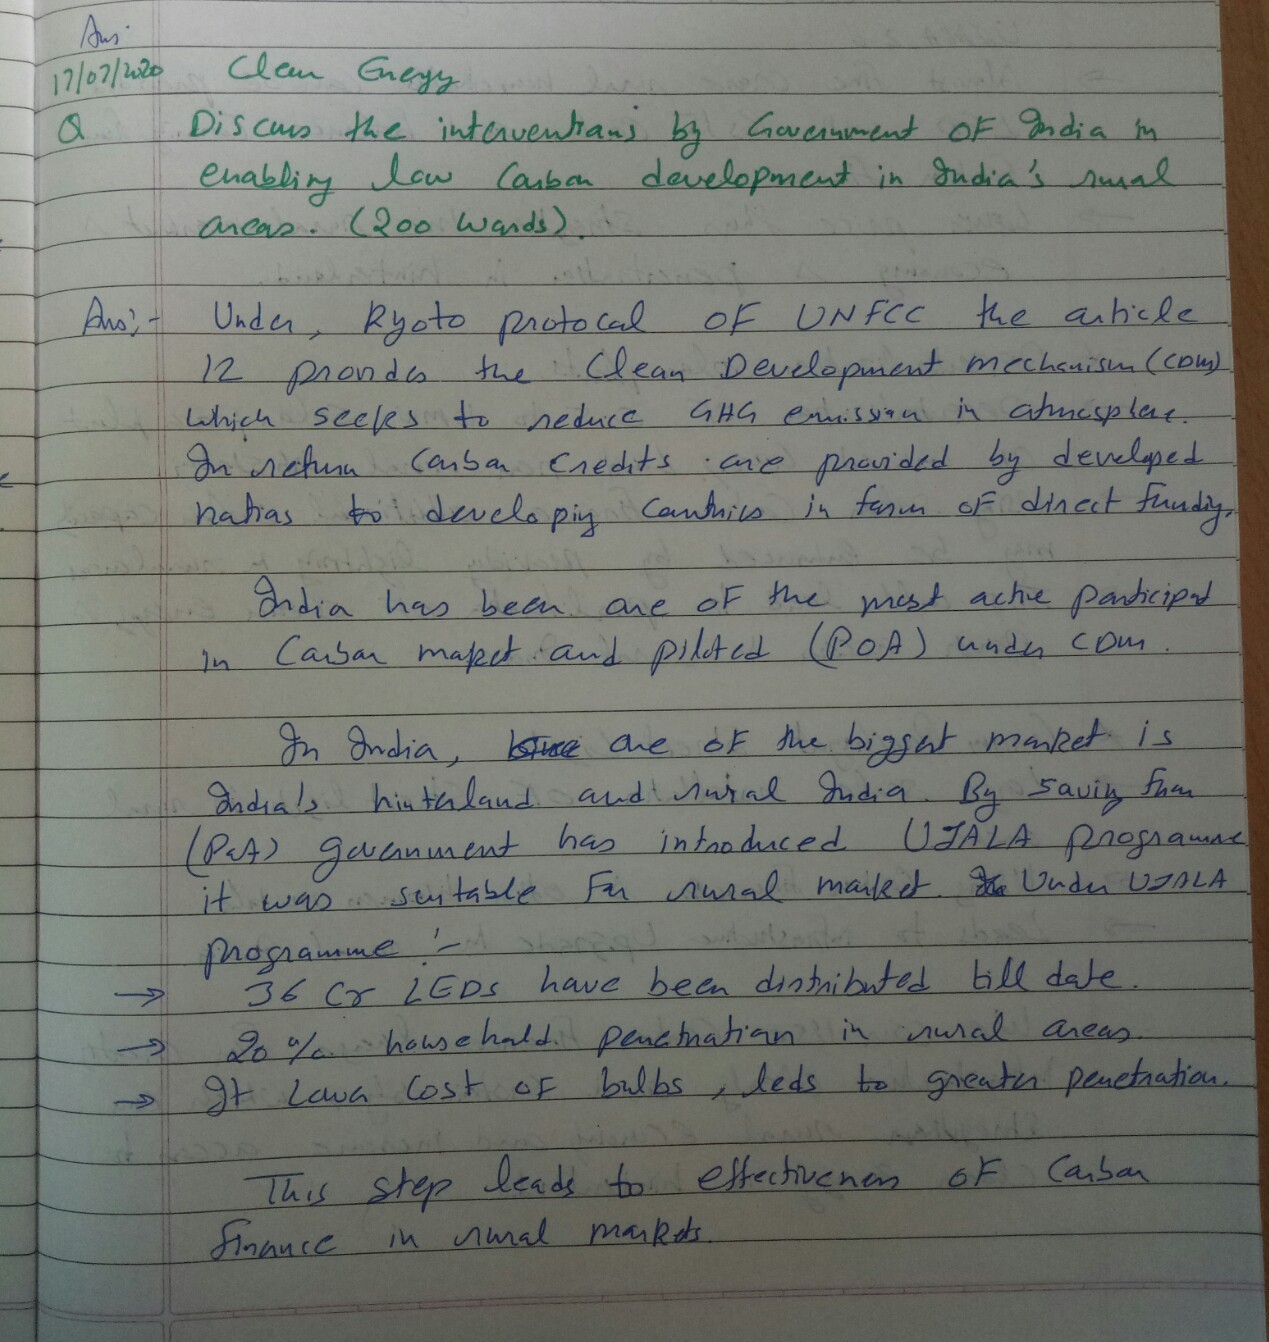 Ans:
17/07/2020 Clean Energy
Q Discuss the interventions by Government of India in
enabling low Carbon development in India's rural
areas. (200 Words).
Ans:- Under, Kyoto protocol of UNFCC the article
12 provides the Clean Development mechanism (CDM)
which seeks to reduce GHG emission in atmosphere.
In return Carbon Credits are provided by developed
nations to developing Countries in form of direct funding.
India has been one of the most active participant
in Carbon market and piloted (POA) under CDM.
In India, one of the biggest market is
India's hinterland and rural India. By saving from
(PoA) government has introduced UJALA programme
it was suitable for rural market. Under UJALA
programme :-
→ 36 Cr LEDs have been distributed till date.
→ 20 % household penetration in rural areas.
→ It Lower Cost of bulbs, leds to greater penetration.
This step leads to effectiveness of Carbon
finance in rural markets.